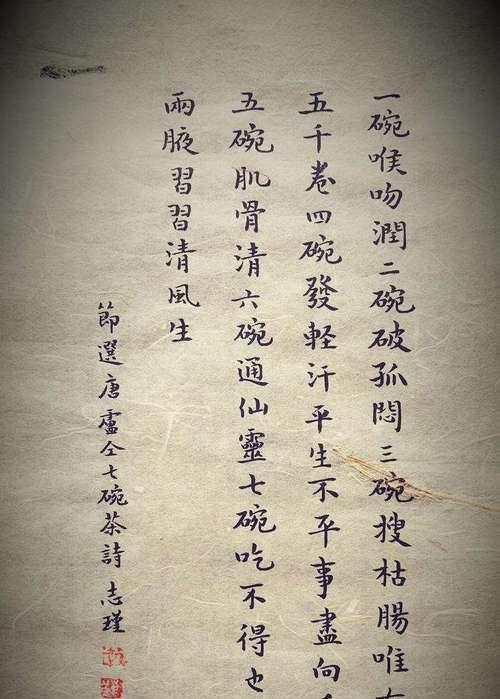 一碗喉吻潤二碗破孤悶三碗搜枯腸唯有
五千卷四碗發軽汗平生不平事盡向
五碗肌骨清六碗通仙靈七碗吃不得也
兩腋習習清風生
節選唐盧仝七碗茶詩 志瑾